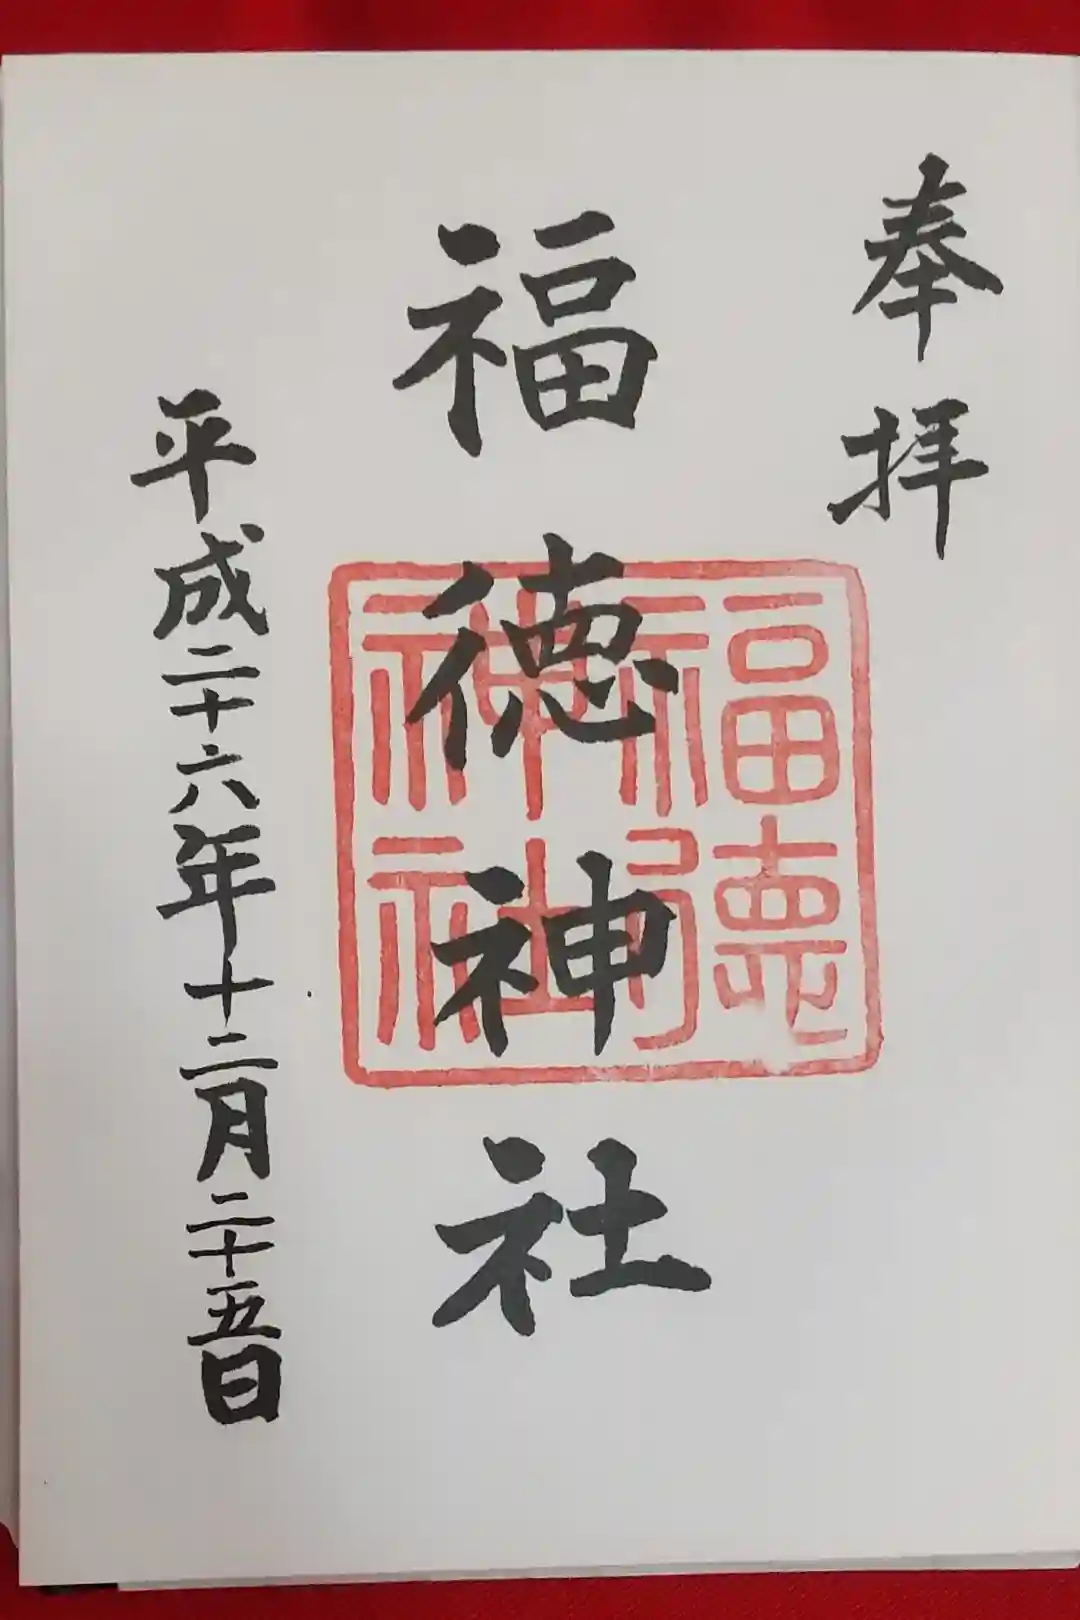 奉拝
福徳神社
福徳
稲荷
神社
平成二十六年十二月二十五日